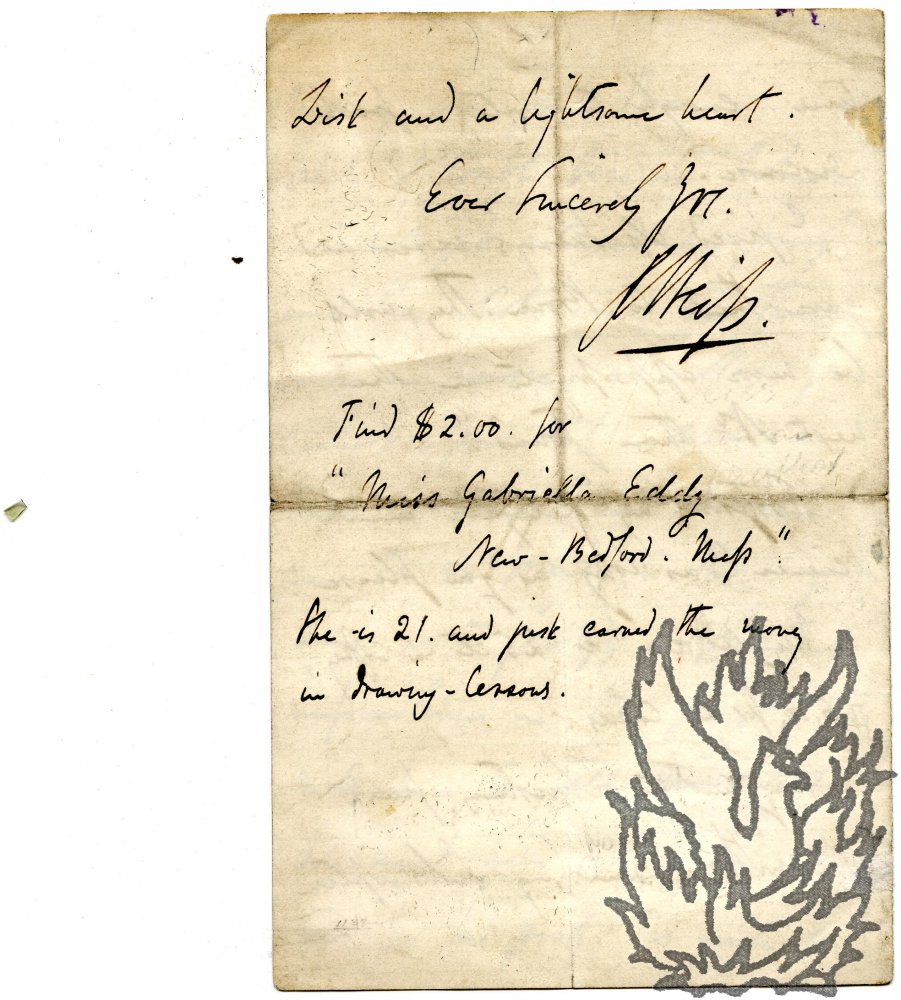 and a lightsome heart.
Ever Sincerely Yrs.
J Weiss.
Find $2.00. for
"Miss Gabriella Eddy
New-Bedford. Mass"
She is 21. and just earned the money
in drawing-lessons.